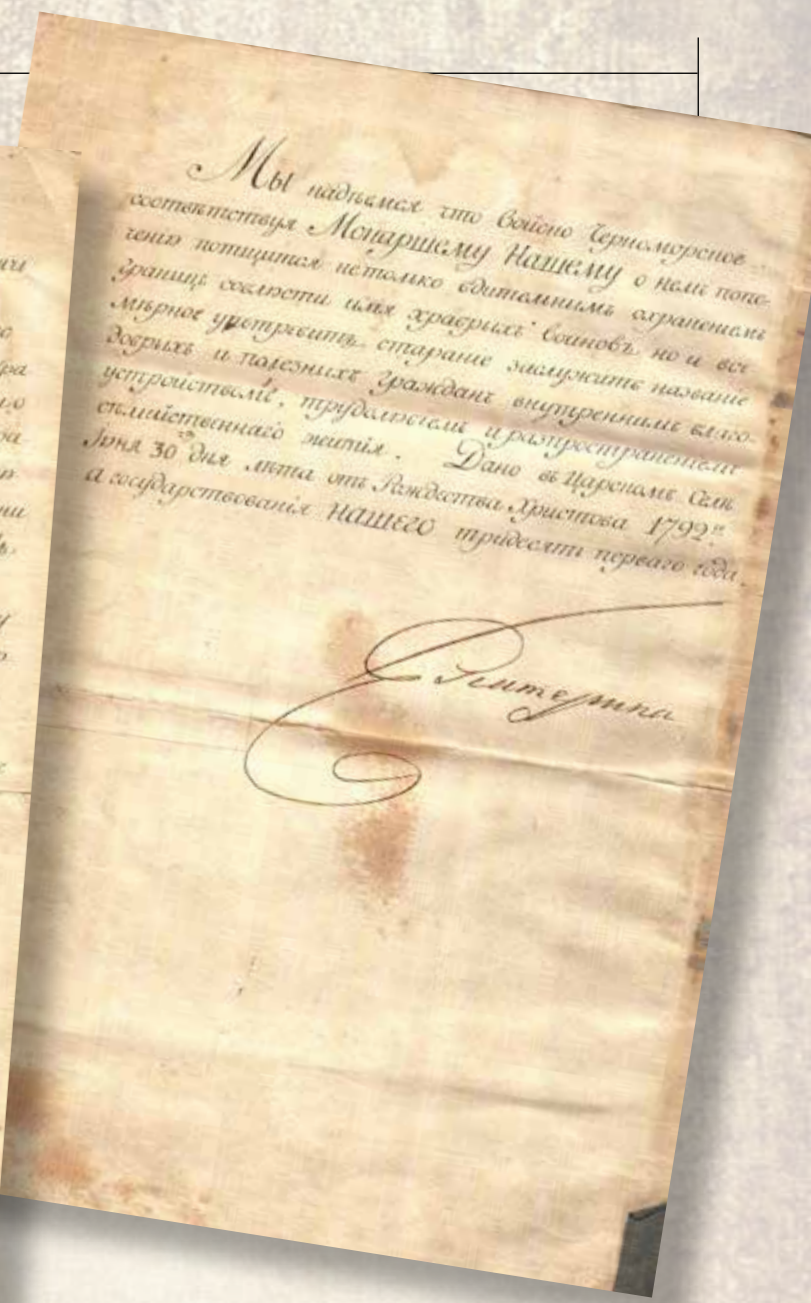 Мы надѣемся что Войско Черноморское
соотвѣтствуя Монаршему Нашему о немъ попе-
ченію потщится нетолько бдителнимъ охраненіемъ
границъ соблюсти имя храбрихъ воиновъ но и все
мѣрное употребить стараніе заслужить названіе
добрихъ и полезнихъ гражданъ внутреннимъ благо-
устройствомъ, трудолюбіемъ и распространеніемъ
семѣйственнаго житія. Дано въ Царскомъ Селѣ
Іюня 30 дня лѣта отъ Рождества Христова 1792го
а государствованія НАШЕГО тридесять перваго года.
Екатерина